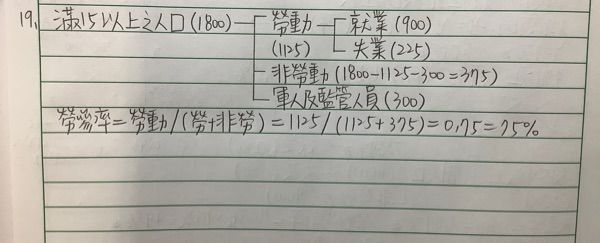 19. 滿15以上之人口(1800) 勞動 就業(900)
(1125) 失業(225)
非勞動(1800-1125-300=375)
軍人及監管人員(300)
勞參率=勞動/(勞+非勞)=1125/(1125+375)=0.75=75%